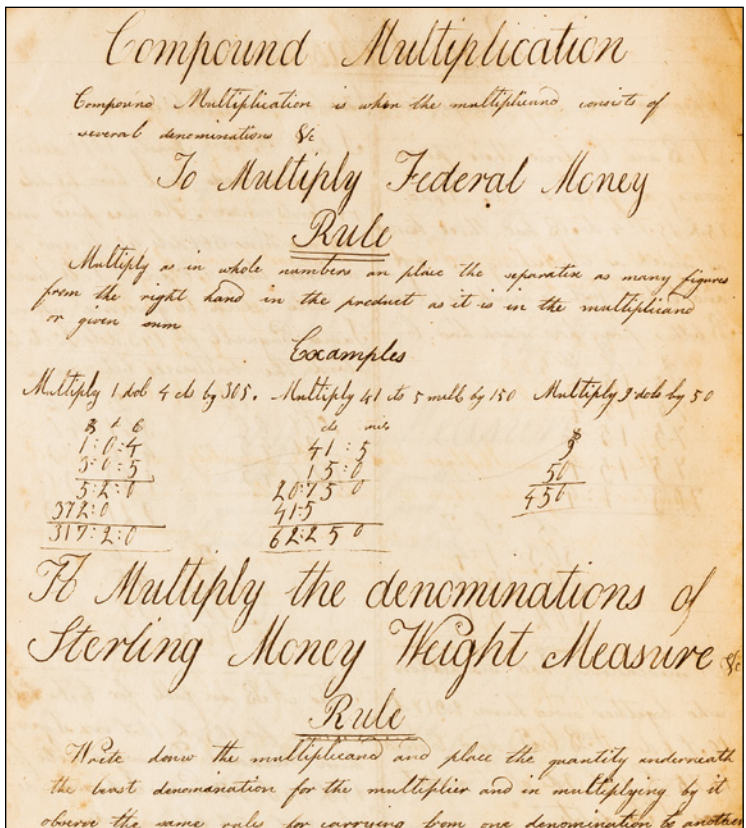 Compound Multiplication
Compound Multiplication is when the multiplicand consists of
several denominations &c
To Multiply Federal Money
Rule
Multiply as in whole numbers an place the separatix as many figures
from the right hand in the product as it is in the multiplicand
or given sum
Examples
Multiply 1 dol 4 cts by 305. Multiply 41 cts 5 mills by 150 Multiply 9 dols by 50
$ d c cts mils $
1:0:4 41:5 9
3:0:5 15:0 50
5:2:0 20:7 5 0 450
312:0 41:5
317:2:0 62:2 5 0
To Multiply the denominations of
Sterling Money Weight Measure &c
Rule
Write down the multiplicand and place the quantity underneath
the least denomination for the multiplier and in multiplying by it
observe the same rules for carrying from one denomination to another